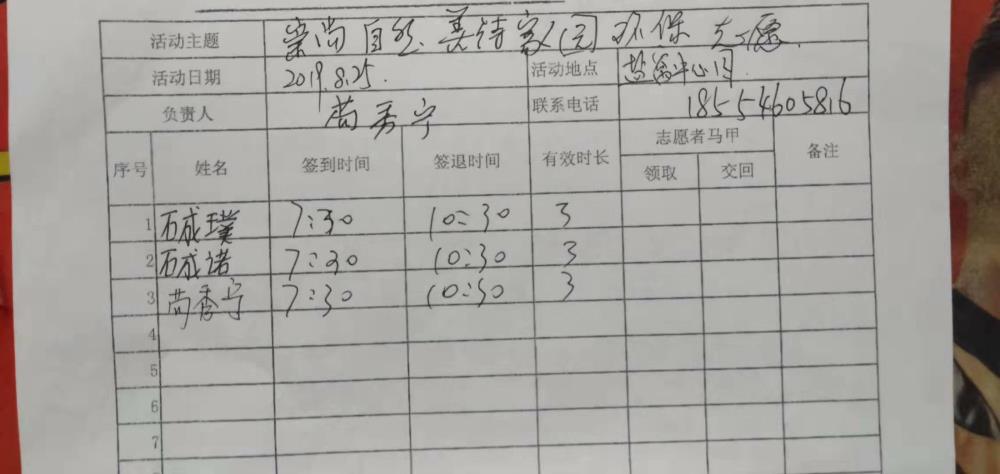 活动主题 崇尚自然 美待家园 环保志愿
活动日期 2019.8.25. 活动地点
负责人 苘秀宁 联系电话 18554605816
序号 姓名 签到时间 签退时间 有效时长 志愿者马甲 备注
领取 交回
1 石成璞 7:30 10:30 3
2 石成诺 7:30 10:30 3
3 苘秀宁 7:30 10:30 3
4
5
6
7